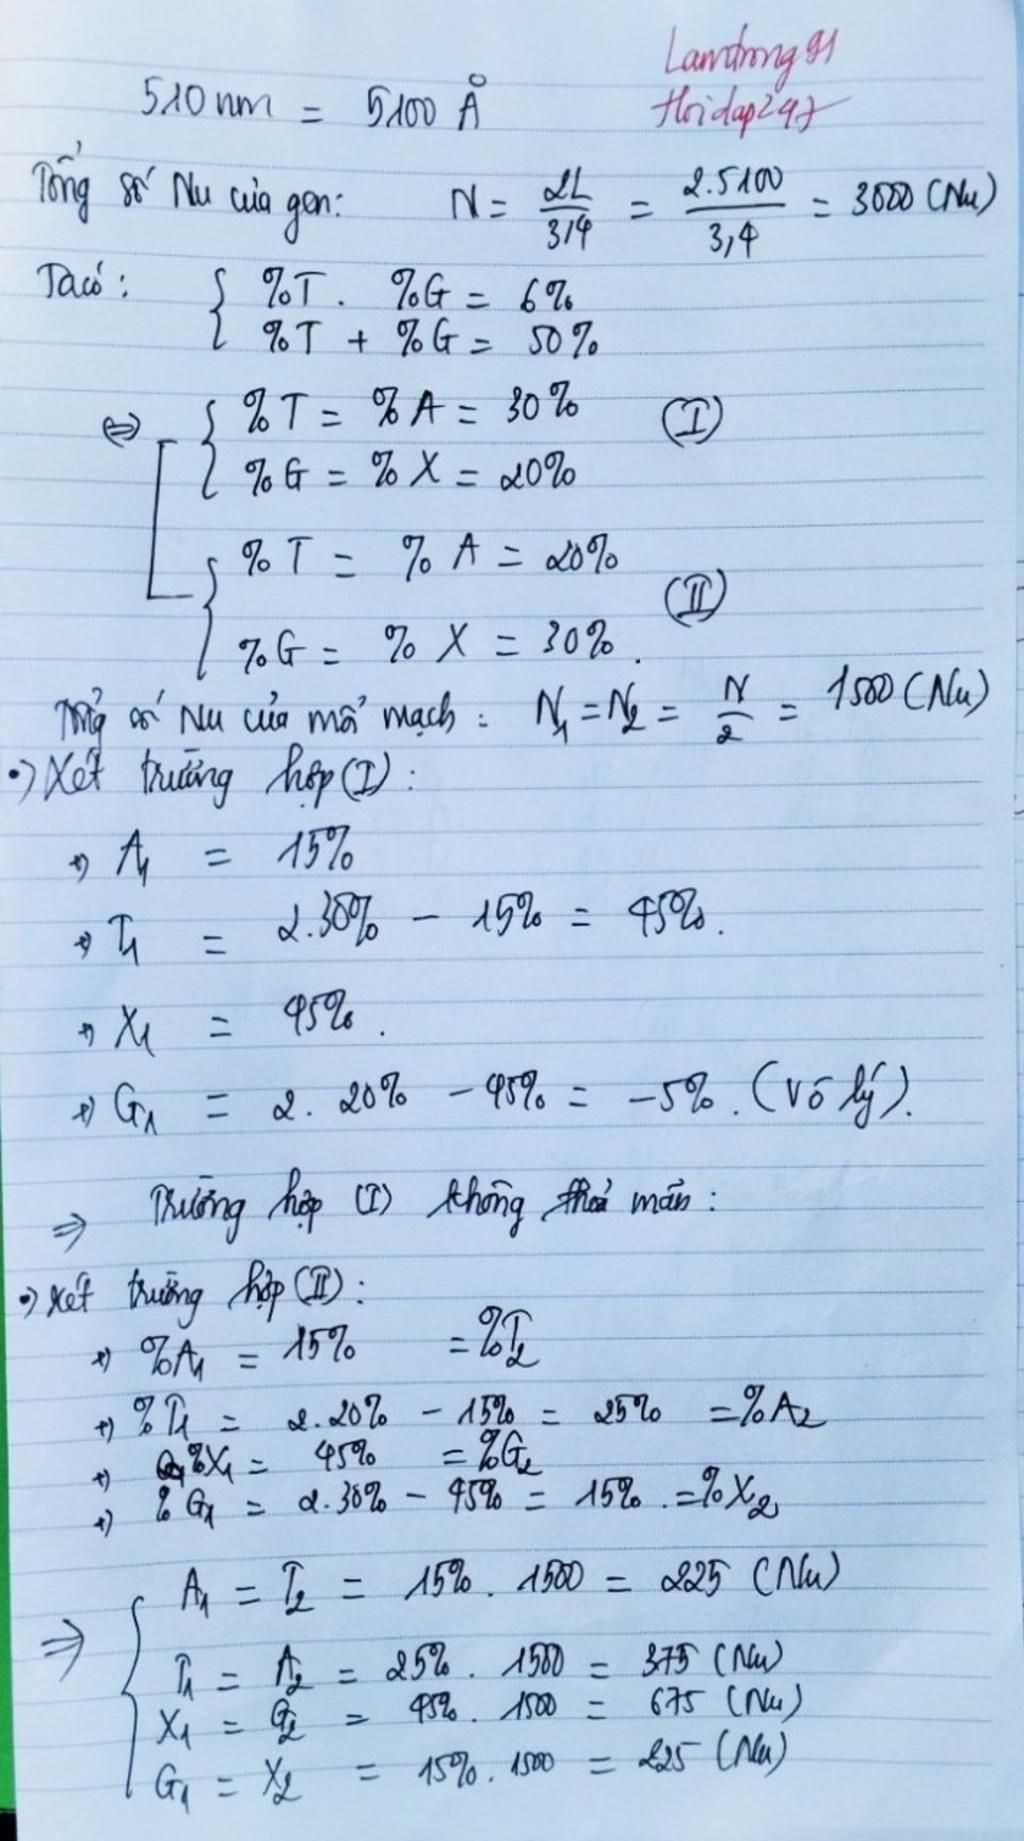 Lamdrong91
Hoidap247
510 nm = 5100 Å
Tổng số Nu của gen: N = 2L/3,4 = 2.5100/3,4 = 3000 (Nu)
Ta có: { %T . %G = 6%
%T + %G = 50%
⇔ [ { %T = %A = 30% (I)
%G = %X = 20%
{ %T = %A = 20% (II)
%G = %X = 30%.
Tổng số Nu của mỗi mạch: N1 = N2 = N/2 = 1500 (Nu)
•) Xét trường hợp (I):
+) A1 = 15%
+) T1 = 2.30% - 15% = 45%.
+) X1 = 45%.
+) G1 = 2. 20% - 45% = -5%. (Vô lý).
⇒ Trường hợp (I) không thoả mãn:
•) Xét trường hợp (II):
+) %A1 = 15% = %T2
+) %T1 = 2.20% - 15% = 25% = %A2
+) %X1 = 45% = %G2
+) %G1 = 2.30% - 45% = 15%. = %X2
⇒ { A1 = T2 = 15%. 1500 = 225 (Nu)
T1 = A2 = 25%. 1500 = 375 (Nu)
X1 = G2 = 45%. 1500 = 675 (Nu)
G1 = X2 = 15%. 1500 = 225 (Nu)